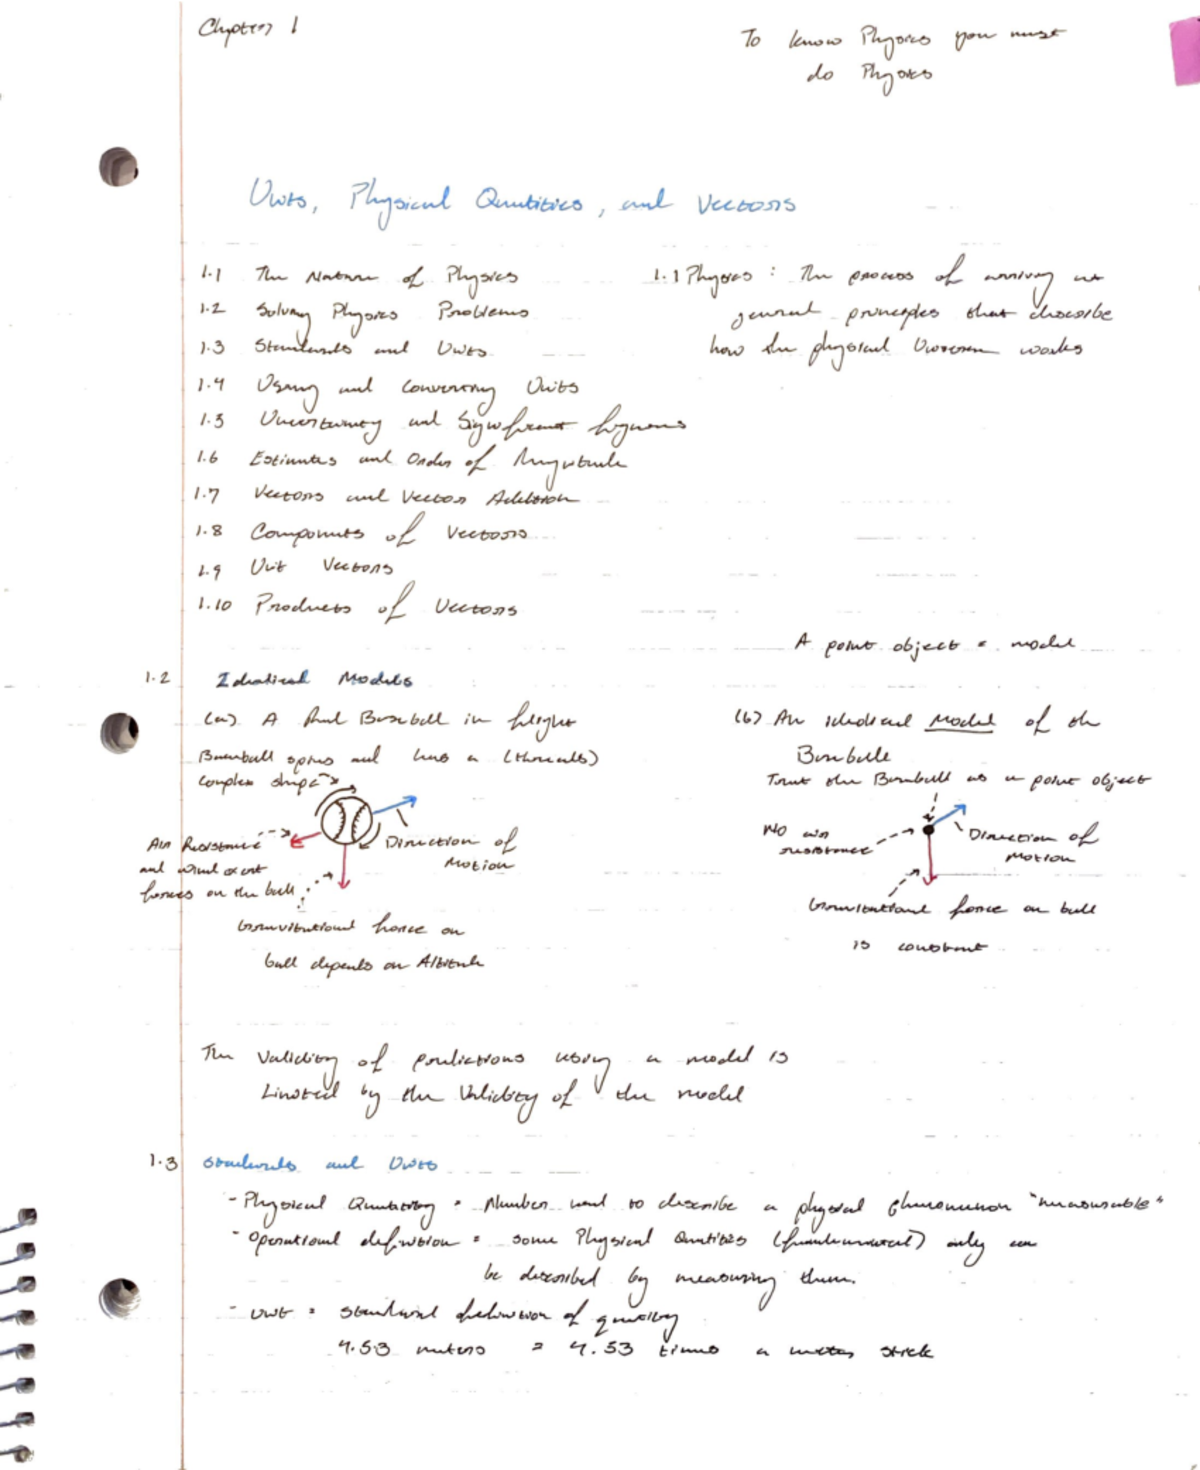 Chapter 1
To know Physics you must
do Physics
Units, Physical Quantities, and Vectors
1.1 The Nature of Physics
1.2 Solving Physics Problems
1.3 Standards and Units
1.4 Using and Converting Units
1.5 Uncertainty and Significant figures
1.6 Estimates and Order of Magnitude
1.7 Vectors and Vector Addition
1.8 Components of Vectors
1.9 Unit Vectors
1.10 Products of Vectors
1.1 Physics : The process of arriving at
general principles that describe
how the physical Universe works
A point object = model
1.2 Idealized Models
(a) A Real Baseball in flight
Baseball spins and has a (threads)
complex shape
Direction of
Motion
Air Resistance
and wind exert
forces on the ball
Gravitational force on
ball depends on Altitude
(b) An idealized Model of the
Baseball
Treat the Baseball as a point object
No air
resistance
Direction of
Motion
Gravitational force on ball
is constant
The Validity of predictions using a model is
Limited by the Validity of the model
1.3 Standards and Units
- Physical Quantity = Number used to describe a physical phenomenon "measurable"
- Operational definition = some Physical Quantities (fundamental) only can
be described by measuring them.
- Unit = standard definition of quantity
4.53 meters = 4.53 times a meter stick